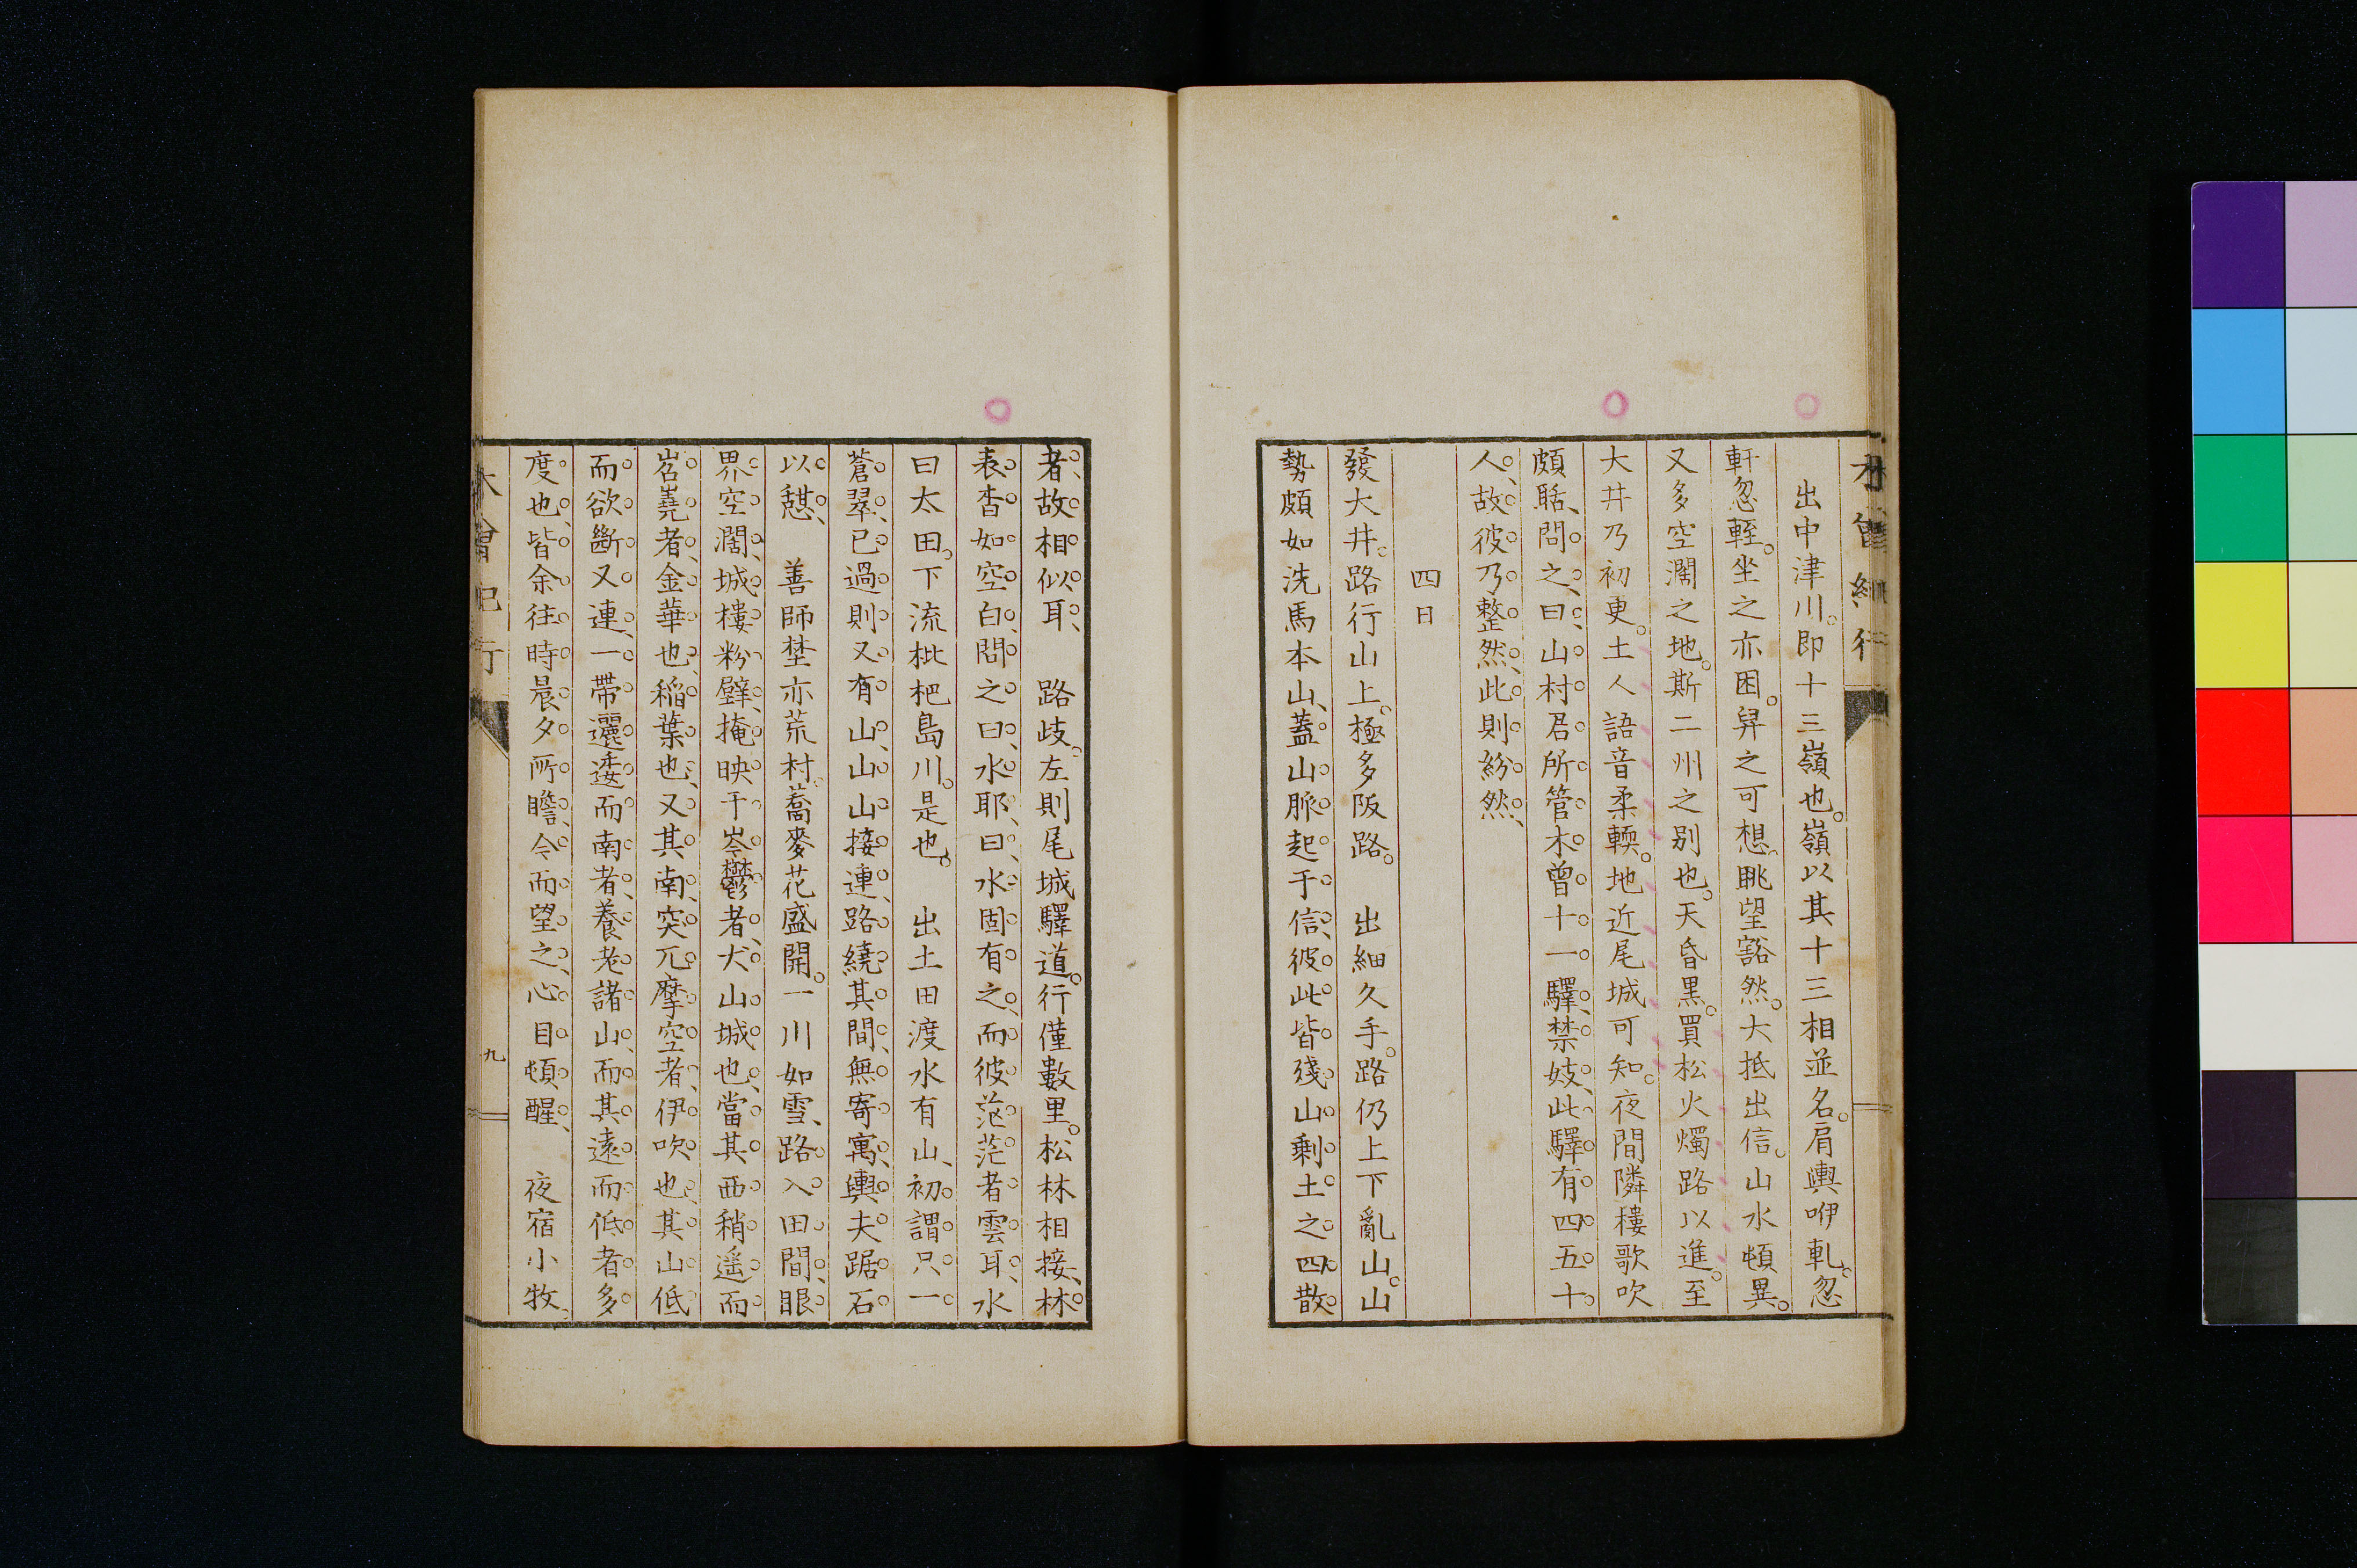 木曾紀行
出中津川。即十三嶺也。嶺以其十三相並名。肩輿咿軋。忽
軒忽輊。坐之亦困。舁之可想。眺望豁然。大抵出信。山水頓異。
又多空濶之地。斯二州之別也。天昏黒。買松火燭路以進。至
大井乃初更。土人語音柔輭。地近尾城可知。夜間隣樓歌吹
頗聒、問之、曰、山村君所管木曾十一驛、禁妓、此驛有四五十
人、故彼乃整然、此則紛然、
四日
發大井。路行山上。極多阪路。 出細久手。路仍上下亂山。山
勢頗如洗馬本山、蓋山脈起于信、彼此皆殘山剩土之四散
者、故相似耳、 路歧。左則尾城驛道。行僅數里。松林相接、林
表杳如空白、問之、曰、水耶、曰、水固有之、而彼茫茫者雲耳、水
曰太田。下流枇杷島川。是也。 出土田渡水有山、初謂只一
蒼翠、已過則又有山、山山接連、路繞其間、無寄寓、輿夫踞石
以憩、 善師埜亦荒村。蕎麥花盛開。一川如雪、路入田間、眼
界空濶、城樓粉壁、掩映于岑鬱者、犬山城也、當其西稍遥而
岧嶤者、金華也、稲葉也、又其南、突兀摩空者、伊吹也、其山低
而欲斷又連、一帶邐逶而南者、養老諸山、而其遠而低者、多
度也、皆余往時晨夕所瞻、今而望之、心目頓醒、 夜宿小牧、
木曾紀行
九